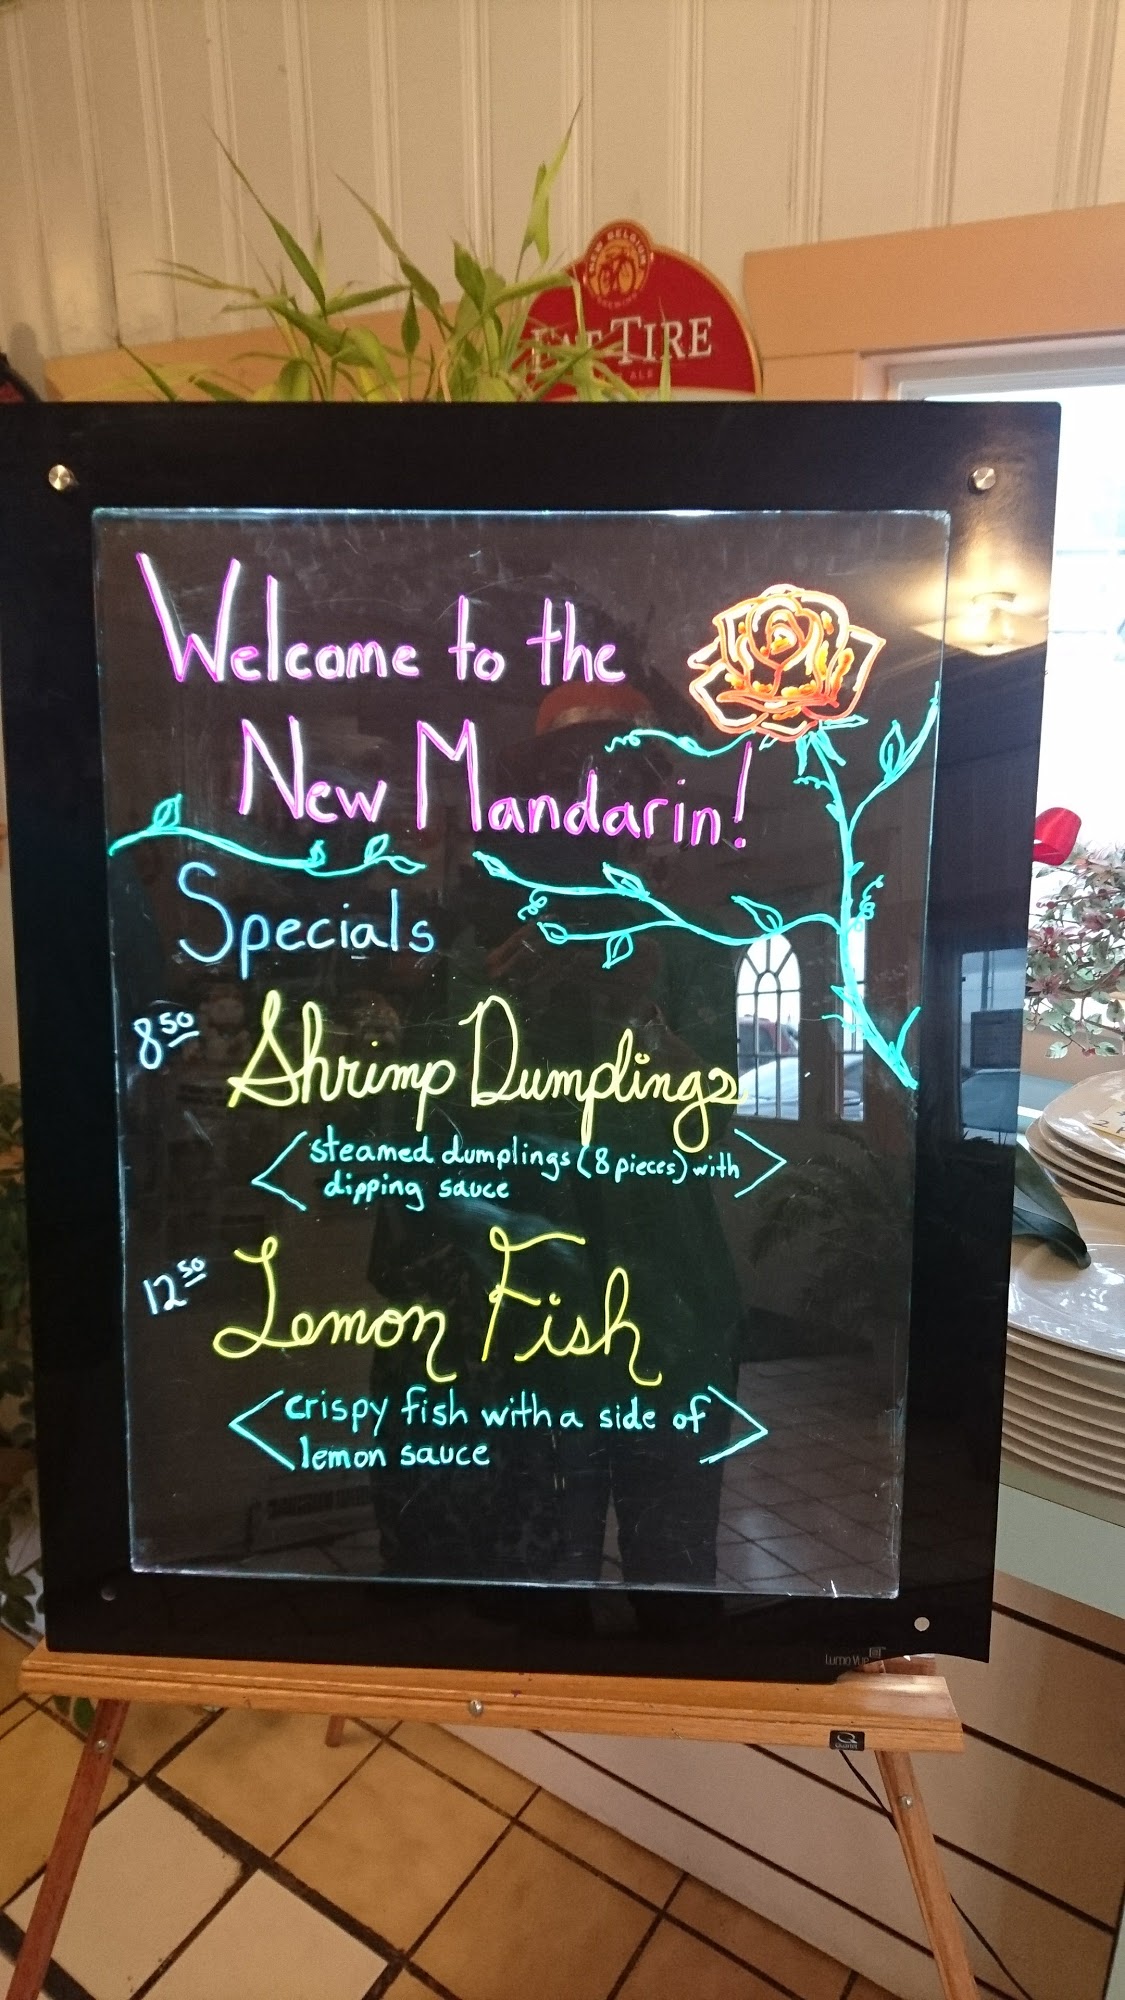 NEW BELGIUM
BREWING
FAT TIRE
ALE
Welcome to the
New Mandarin!
Specials
8 50
Shrimp Dumplings
steamed dumplings (8 pieces) with
dipping sauce
12 50
Lemon Fish
crispy fish with a side of
lemon sauce
Lumo Vue
Q
Quartet